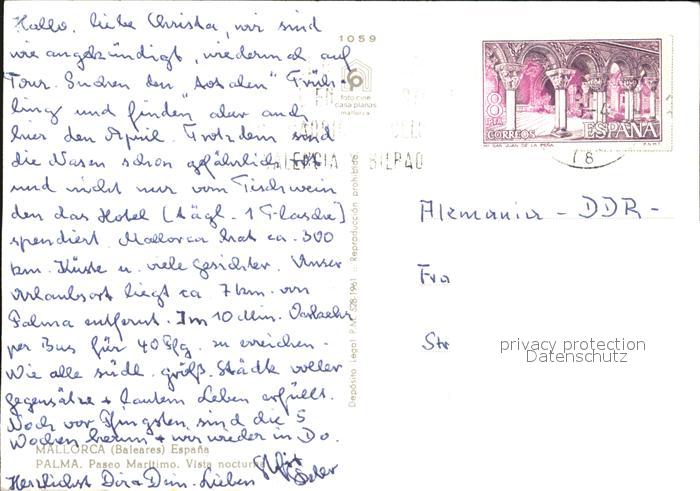 Hallo, liebe Christa, wir sind
wie angekündigt, wiedermal auf
Tour. Suchen den "sonnigen" Früh-
ling und finden aber auch
hier den April. Trotzdem sind
die Nasen schon gefährlich rot
und nicht nur vom Tischwein
den das Hotel (tägl. 1 Flasche)
spendiert. Mallorca hat ca. 300
km. Küste u. viele Gesichter. Unser
Urlaubsort liegt ca. 7 km. von
Palma entfernt. Im 10 Min. Verkehr
per Bus für 40 Pfg. zu erreichen.
Wie alle südl. größ. Städte voller
Gegensätze + lautem Leben erfüllt.
Noch vor Pfingsten sind die 5
Wochen herum + wir wieder in Do.
Herzlichst Dir + Dein. Lieben
MALLORCA (Baleares) España
PALMA. Paseo Marítimo. Vista nocturna
1059
foto cine
casa planas
mallorca
Depósito Legal P.M. 528-1961 :: Reproducción prohibida
VALENCIA Y BILBAO
78
8
PTA
CORREOS
ESPAÑA
Mº SAN JUAN DE LA PEÑA
F.N.M.T.
Alemania - DDR -
Fra
Str
privacy protection
Datenschutz